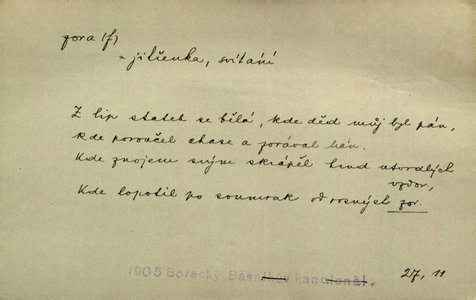 zora (f)
= jitřenka, svítání
Z lip statek se bělá, kde děd můj byl pán,
kde poroučel chase a zorával lán.
Kde znojem svým skrápěl hrud utvrdlých
vzdor,
Kde lopotil po soumrak od rosných zor.
1905 Borecký Básníkův kancionál.
27, 11